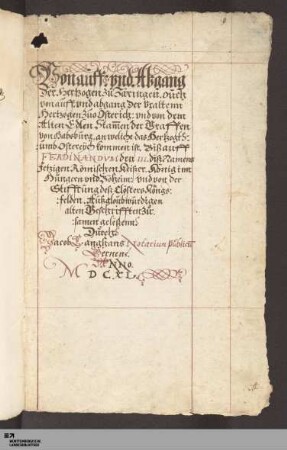 Von auff: vnd Abgang
Der Hertzogen zu Zäringen, Auch
von auff vnd abgang der vralten
Hertzogen zuo Osterich: vnd von dem
Alten Edlen Stammen der Graffen
von Habspurg, an welche das Hertzogth:
umb Osterych kommen ist. Biß auff
FERDINANDUM den III. diß Namens
jetzigen Römischen Keiser, König im
Hungern vnd Böheim: vnd von der
Stifftung deß Closters Königs:
felden, Auß gloubwürdigen
alten Geschrifften zu:
samen gelesenn.
Durch
Jacob Langhans Notarium publicum
Bernens.
ANNO.
M D C XL.